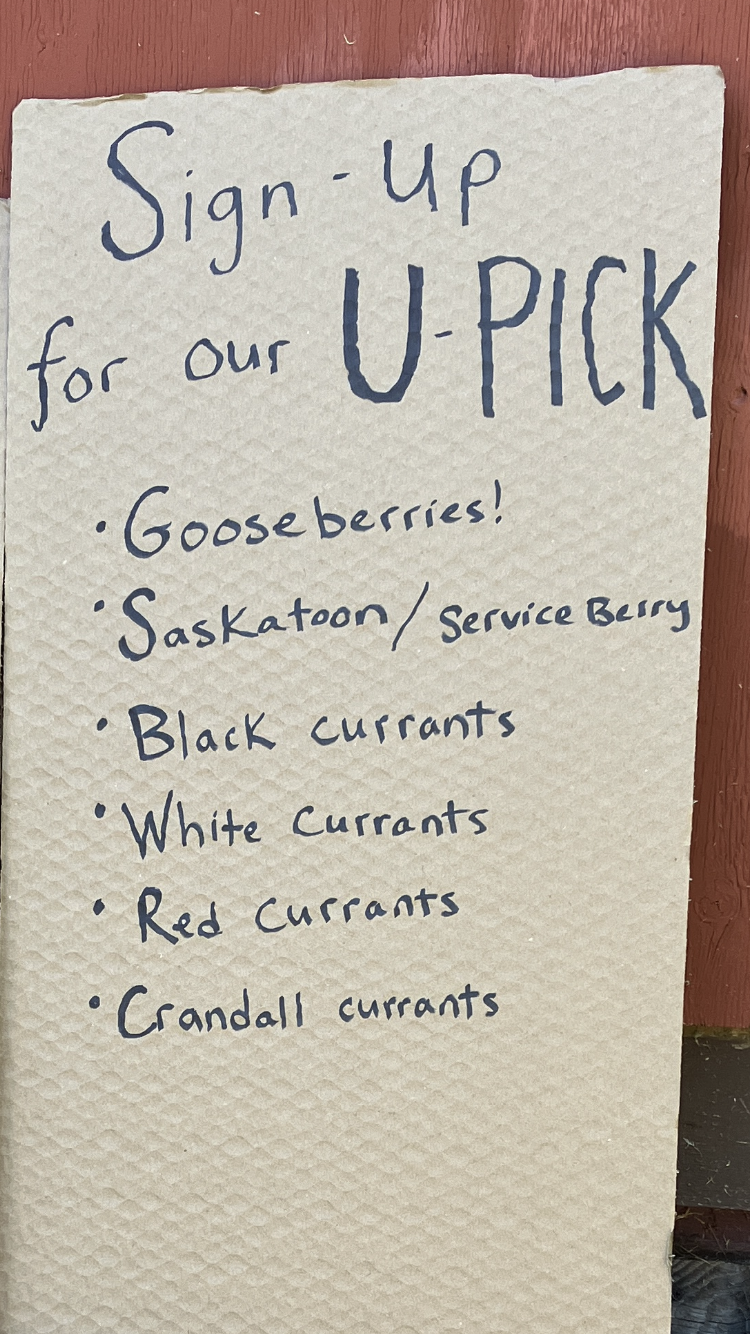 Sign-Up
for our U-PICK
• Gooseberries!
• Saskatoon / Service Berry
• Black currants
• White Currants
• Red Currants
• Crandall currants